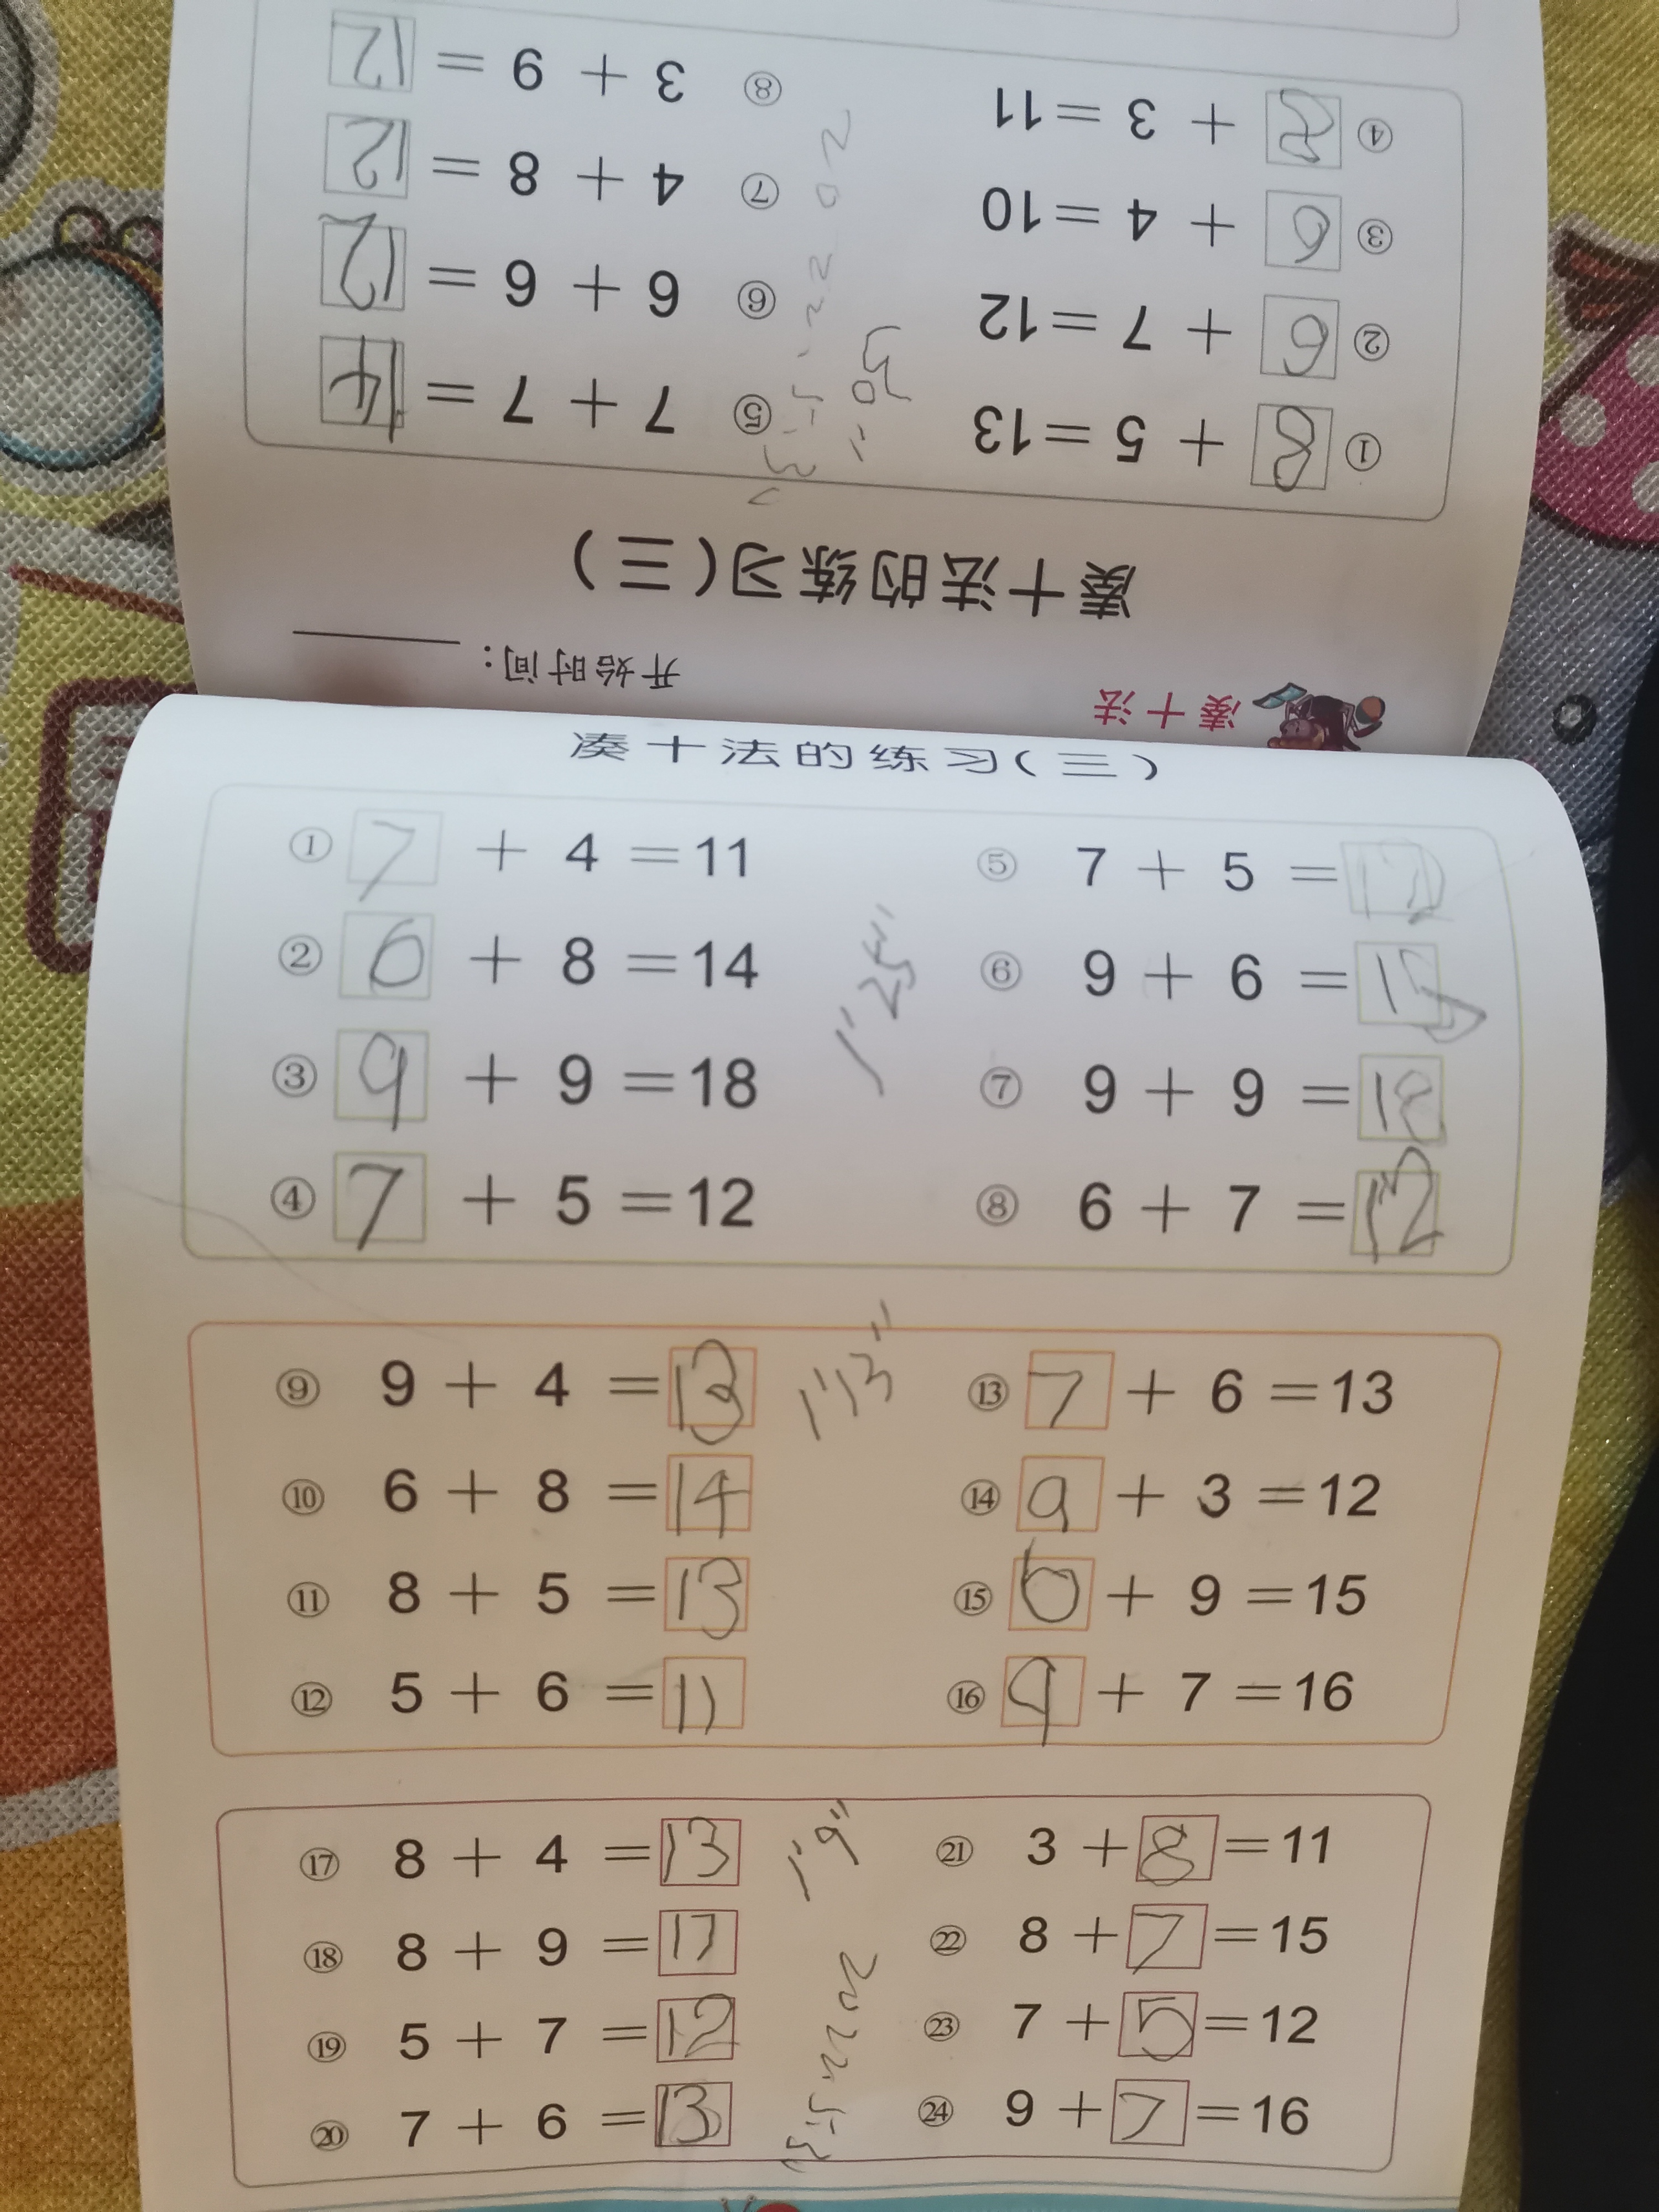 凑十法
开始时间：
凑十法的练习(三)
① 8 + 5 =13
② 6 + 7 =12
③ 6 + 4 =10
④ 8 + 3 =11
50"
⑤ 7 + 7 = 14
⑥ 6 + 6 = 12
⑦ 4 + 8 = 12
⑧ 3 + 9 = 12
凑十法的练习(三)
① 7 + 4 =11
② 6 + 8 =14
③ 9 + 9 =18
④ 7 + 5 =12
1'25"
⑤ 7 + 5 = 12
⑥ 9 + 6 = 15
⑦ 9 + 9 = 18
⑧ 6 + 7 = 12
⑨ 9 + 4 = 13
⑩ 6 + 8 = 14
⑪ 8 + 5 = 13
⑫ 5 + 6 = 11
1'13"
⑬ 7 + 6 =13
⑭ 9 + 3 =12
⑮ 6 + 9 =15
⑯ 9 + 7 =16
⑰ 8 + 4 = 13
⑱ 8 + 9 = 17
⑲ 5 + 7 = 12
⑳ 7 + 6 = 13
1'9"
㉑ 3 + 8 =11
㉒ 8 + 7 =15
㉓ 7 + 5 =12
㉔ 9 + 7 =16